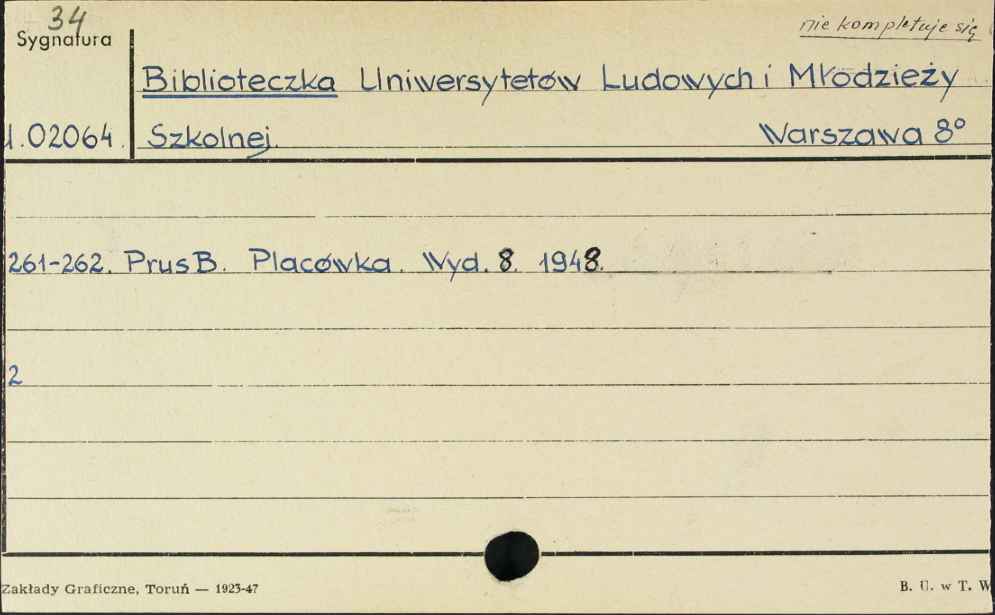 34
nie kompletuje się
Sygnatura
Biblioteczka Uniwersytetów Ludowych i Młodzieży
02064. Szkolnej. Warszawa 8°
261-262. Prus B. Placówka. Wyd. 8. 1948.
2
Zakłady Graficzne, Toruń — 1923-47
B. U. w T. W